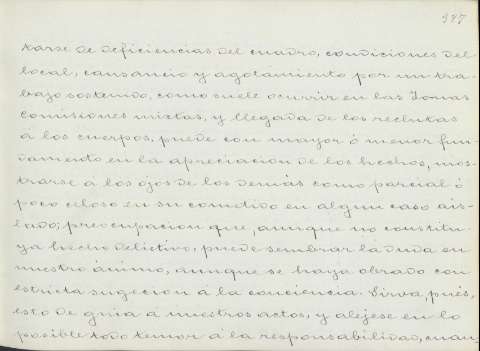 347
tarse de deficiencias del cuadro, condiciones del
local, cansancio y agotamiento por un tra-
bajo sostenido, como suele ocurrir en las
comisiones mixtas, y llegada de los reclutas
á los cuerpos, puede con mayor ó menor fun-
damento en la apreciacion de los hechos, mos-
trarse a los ojos de los demás como parcial ó
poco celoso en su cometido en algun caso ais-
lado; preocupacion que, aunque no constitu-
ya hecho delictivo, puede sembrar la duda en
nuestro ánimo, aunque se haya obrado con
estricta sugecion á la conciencia. Sirva, pués,
esto de guia á nuestros actos, y aléjese en lo
posible todo temor á la responsabilidad, cuan